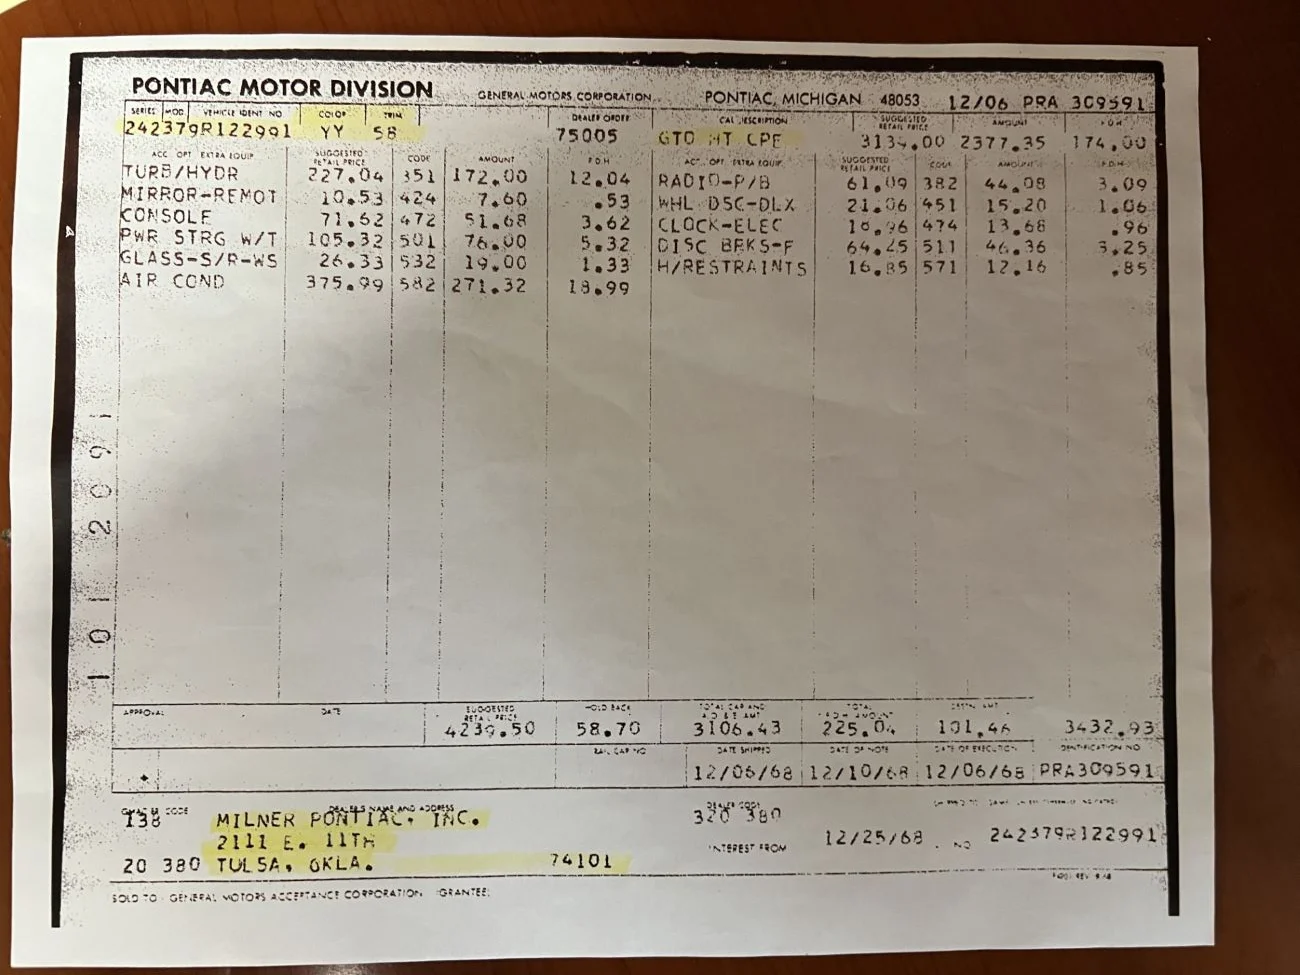 PONTIAC MOTOR DIVISION GENERAL MOTORS CORPORATION PONTIAC, MICHIGAN 48053 12/06 PRA 309591
SERIES MOD VEHICLE IDENT NO COLOR TRIM DEALER ORDER SUGGESTED RETAIL PRICE AMOUNT
242379R122991 YY 58 75005 GTO HT CPE 3134.00 2377.35 174.00
ACC. OPT. EXTRA EQUIP. SUGGESTED RETAIL PRICE CODE AMOUNT ACC. OPT. EXTRA EQUIP. SUGGESTED RETAIL PRICE CODE AMOUNT
TURB/HYDR 227.04 351 172.00 12.04 RADIO-P/B 61.09 382 44.08 3.09
MIRROR-REMOT 10.53 424 7.60 .53 WHL DSC-DLX 21.06 451 15.20 1.06
CONSOLE 71.62 472 51.68 3.62 CLOCK-ELEC 474 13.68 .96
PWR STRG W/T 105.32 501 76.00 5.32 DISC BRKS-F 64.25 511 46.36 3.25
GLASS-S/R-WS 26.33 532 19.00 1.33 H/RESTRAINTS 16.85 571 12.16 .85
AIR COND 375.99 582 271.32 18.99
APPROVAL DATE SUGGESTED RETAIL PRICE HOLD BACK TOTAL CAR AND TOTAL
4239.50 58.70 3106.43 225.04 101.46 3432.93
RAIL CAR NO DATE SHIPPED DATE OF NOTE DATE OF EXECUTION IDENTIFICATION NO
12/06/68 12/10/68 12/06/68 PRA309591
DEALER'S NAME AND ADDRESS DEALER CODE
138 MILNER PONTIAC, INC. 320 380
2111 E. 11TH INTEREST FROM 12/25/68 NO 242379R122991
20 380 TULSA, OKLA. 74101
SOLD TO GENERAL MOTORS ACCEPTANCE CORPORATION (GRANTEE)